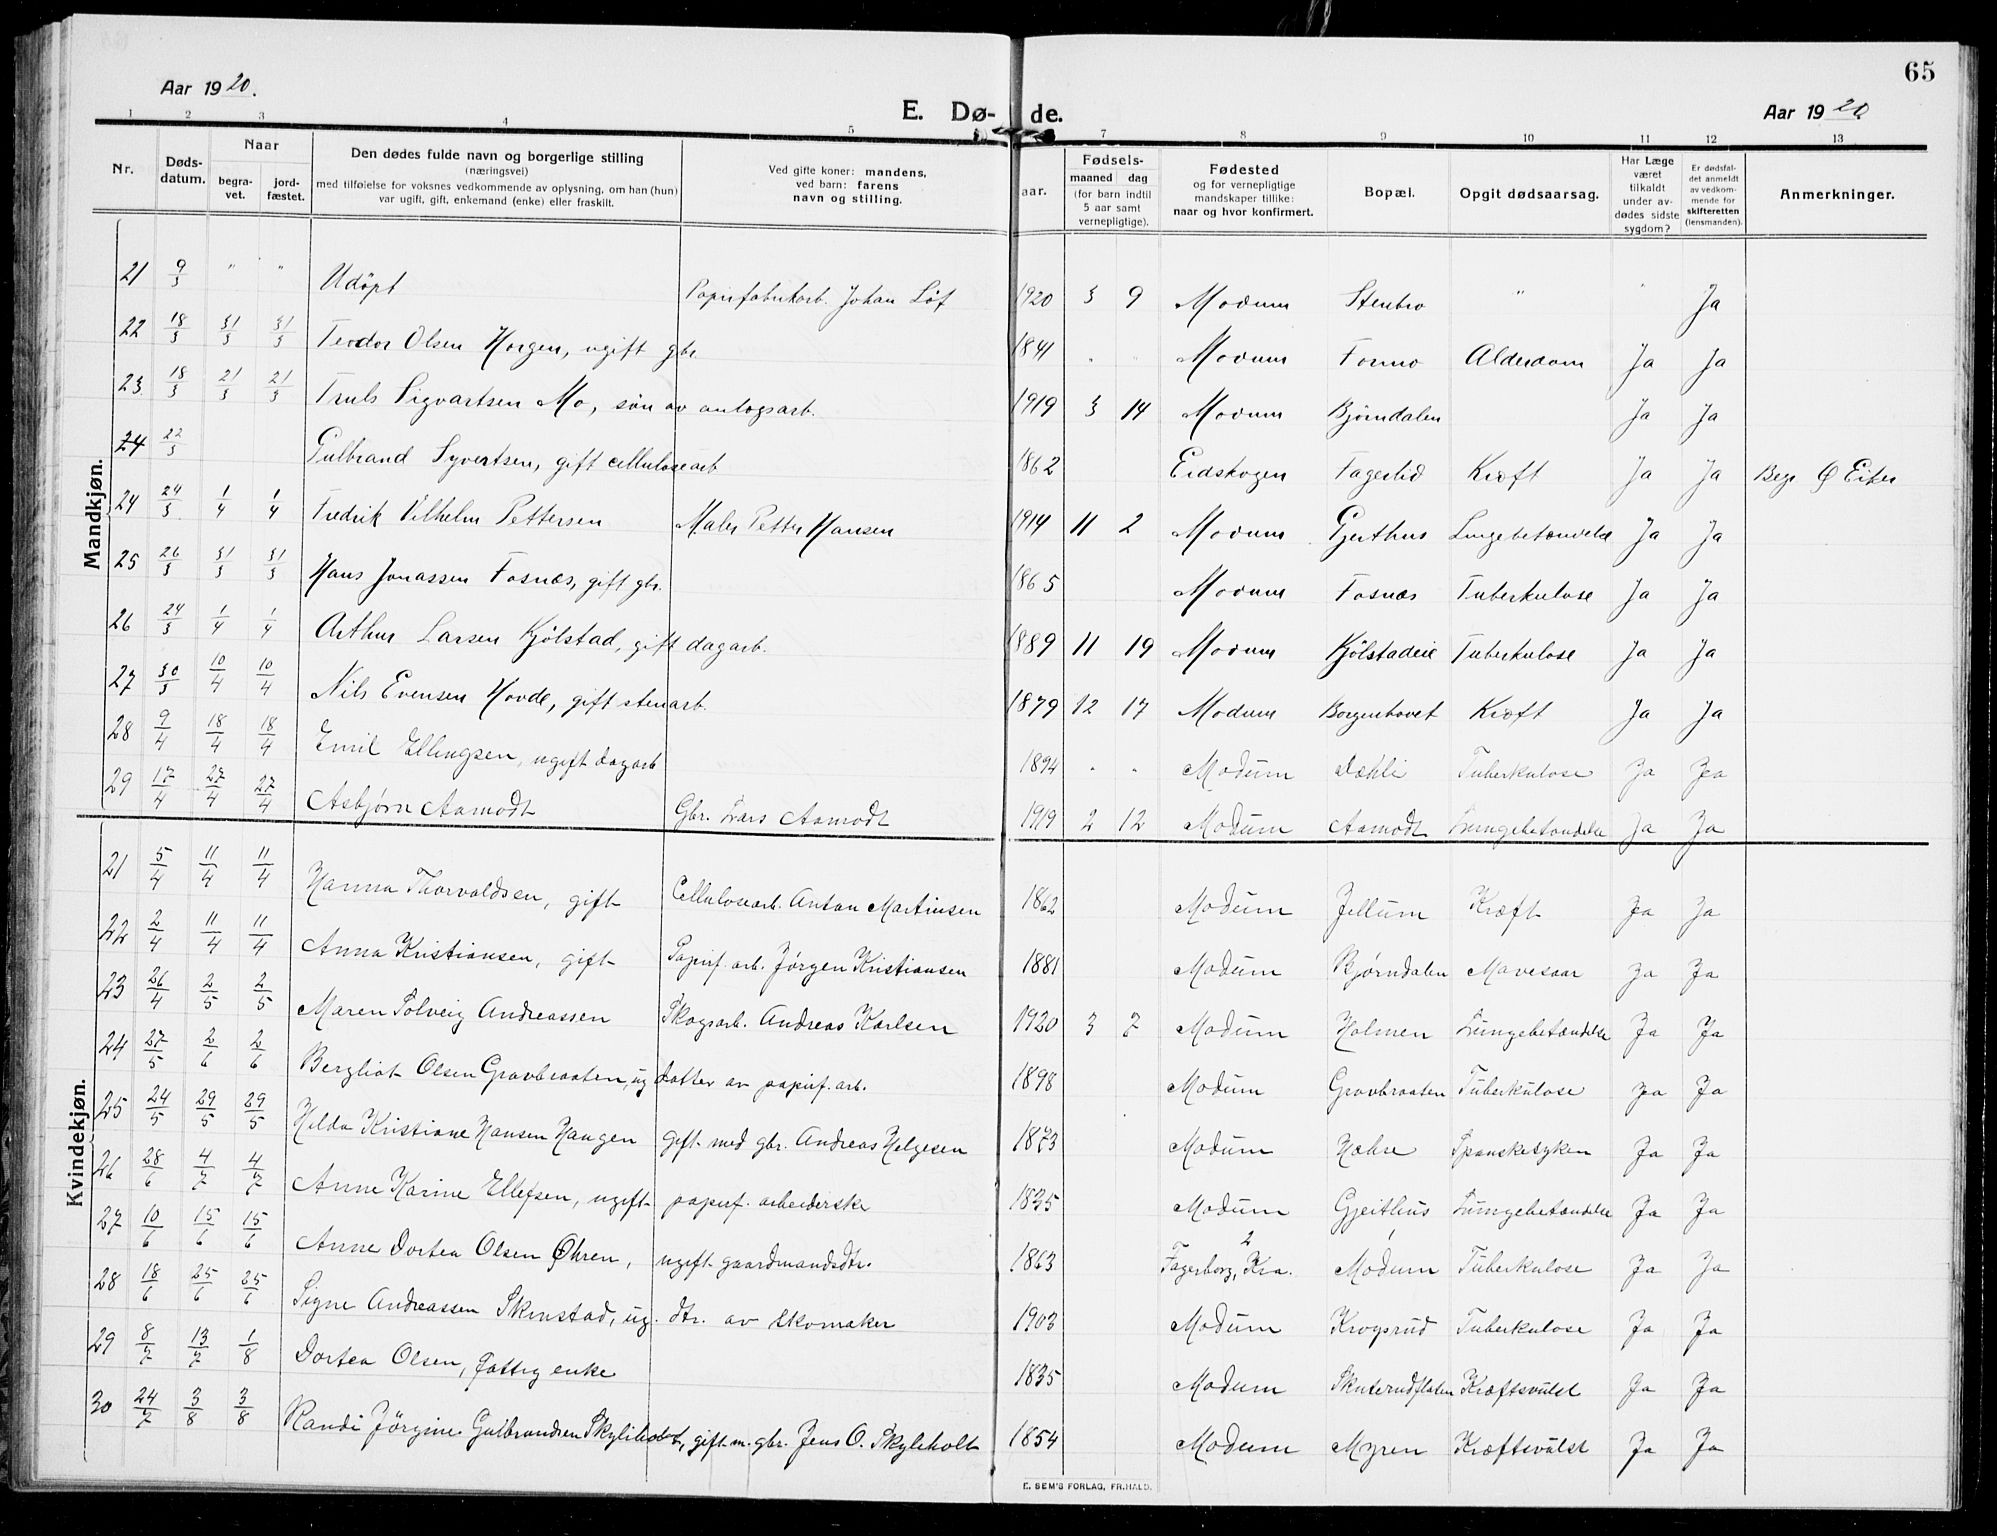 65
Aar 1920.
E. Døde.
Aar 1920
1 2 3 4 5 7 8 9 10 11 12 13
Nr. Døds-datum. Naar begra-vet. jord-fæstet. Den dødes fulde navn og borgerlige stilling (næringsvei) med tilføielse for voksnes vedkommende av oplysning, om han (hun) var ugift, gift, enkemand (enke) eller fraskilt. Ved gifte koner: mandens, ved barn: farens navn og stilling. aar. Fødsels- maaned dag (for barn indtil 5 aar samt vernepligtige). Fødested og for vernepligtige mandskaper tillike: naar og hvor konfirmert. Bopæl. Opgit dødsaarsag. Har Læge været tilkaldt under av-dødes sidste sygdom? Er dødsfal-det anmeldt av vedkom-mende for skifteretten (lensmanden). Anmerkninger.
Mandkjøn.
21 9/3 " " Udöpt Papirfabrikarb. Johan Löf 1920 3 9 Modum Stenbro " " Ja
22 18/3 31/3 31/3 Teodor Olsen Horgen, ugift gbr. 1841 " " Modum Formo Alderdom Ja Ja
23 18/3 21/3 21/3 Truls Sigvartsen Mo, sön av anlægsarb. 1919 3 14 Modum Bjørndalen Ja Ja
24 22/3 Gulbrand Syvertsen, gift cellulosearb 1862 Eidskogen Fagerlid Kræft Ja Ja Begr Ø Eiker
24 24/3 1/4 1/4 Fredrik Vilhelm Pettersen Maler Petter Hansen 1914 11 2 Modum Gjerthus Lungebetændelse Ja Ja
25 26/3 31/3 31/3 Hans Jonassen Fosnæs, gift gbr. 1865 Modum Fosnæs Tuberkulose Ja Ja
26 24/3 1/4 1/4 Arthur Larsen Kjölstad, gift dagarb. 1889 11 19 Modum Kjölstadeie Tuberkulose Ja Ja
27 30/3 10/4 10/4 Nils Evensen Hovde, gift stenarb. 1879 12 17 Modum Borgenhovet Kræft Ja Ja
28 9/4 18/4 18/4 Emil Ellingsen, ugift dagarb 1894 " " Modum Dæhli Tuberkulose Ja Ja
29 17/4 27/4 27/4 Asbjørn Aamodt Gbr. Lars Aamodt 1919 2 12 Modum Aamodt Lungebetændelse Ja Ja
Kvindekjøn.
21 5/4 11/4 11/4 Hanna Thorvaldsen, gift Cellulosearb. Anton Martinsen 1862 Modum Jellum Kræft Ja Ja
22 2/4 11/4 11/4 Anna Kristiansen, gift Papirf. arb. Jörgen Kristiansen 1881 Modum Bjørndalen Mavesaar Ja Ja
23 26/4 2/5 2/5 Maren Solveig Andreassen Skogsarb. Andreas Karlsen 1920 3 7 Modum Holmen Lungebetændelse Ja Ja
24 27/5 2/6 2/6 Bergliot Olsen Gravbraaten, ug datter av papirf. arb. 1898 Modum Gravbraaten Tuberkulose Ja Ja
25 24/5 29/5 29/5 Hilda Kristiane Hansen Haugen gift med gbr. Andreas Helgesen 1873 Modum Hæhre Spanskesyken Ja Ja
26 28/6 4/7 4/7 Anne Karine Ellefsen, ugift papirf. arbeiderske 1835 Modum Gjeithus Lungebetændelse Ja Ja
27 10/6 15/6 15/6 Anne Dortea Olsen Øhren, ugift gaardmandsdtr. 1863 Fagerborg, Kra. 2 Modum 1 Tuberkulose Ja Ja
28 18/6 25/6 25/6 Signe Andreassen Skinstad, ug. dtr. av skomaker 1903 Modum Krogsrud Tuberkulose Ja Ja
29 8/7 13/7 1/8 Dortea Olsen, fattig enke 1835 Modum Skuterudflaten Kræftsvulst Ja Ja
30 24/7 3/8 3/8 Randi Jörgine Gulbrandsen Skyliholt, gift m. gbr. Jens O. Skyleholt 1854 Modum Myren Kræftsvulst Ja Ja
E. SEM'S FORLAG, FR.HALD.